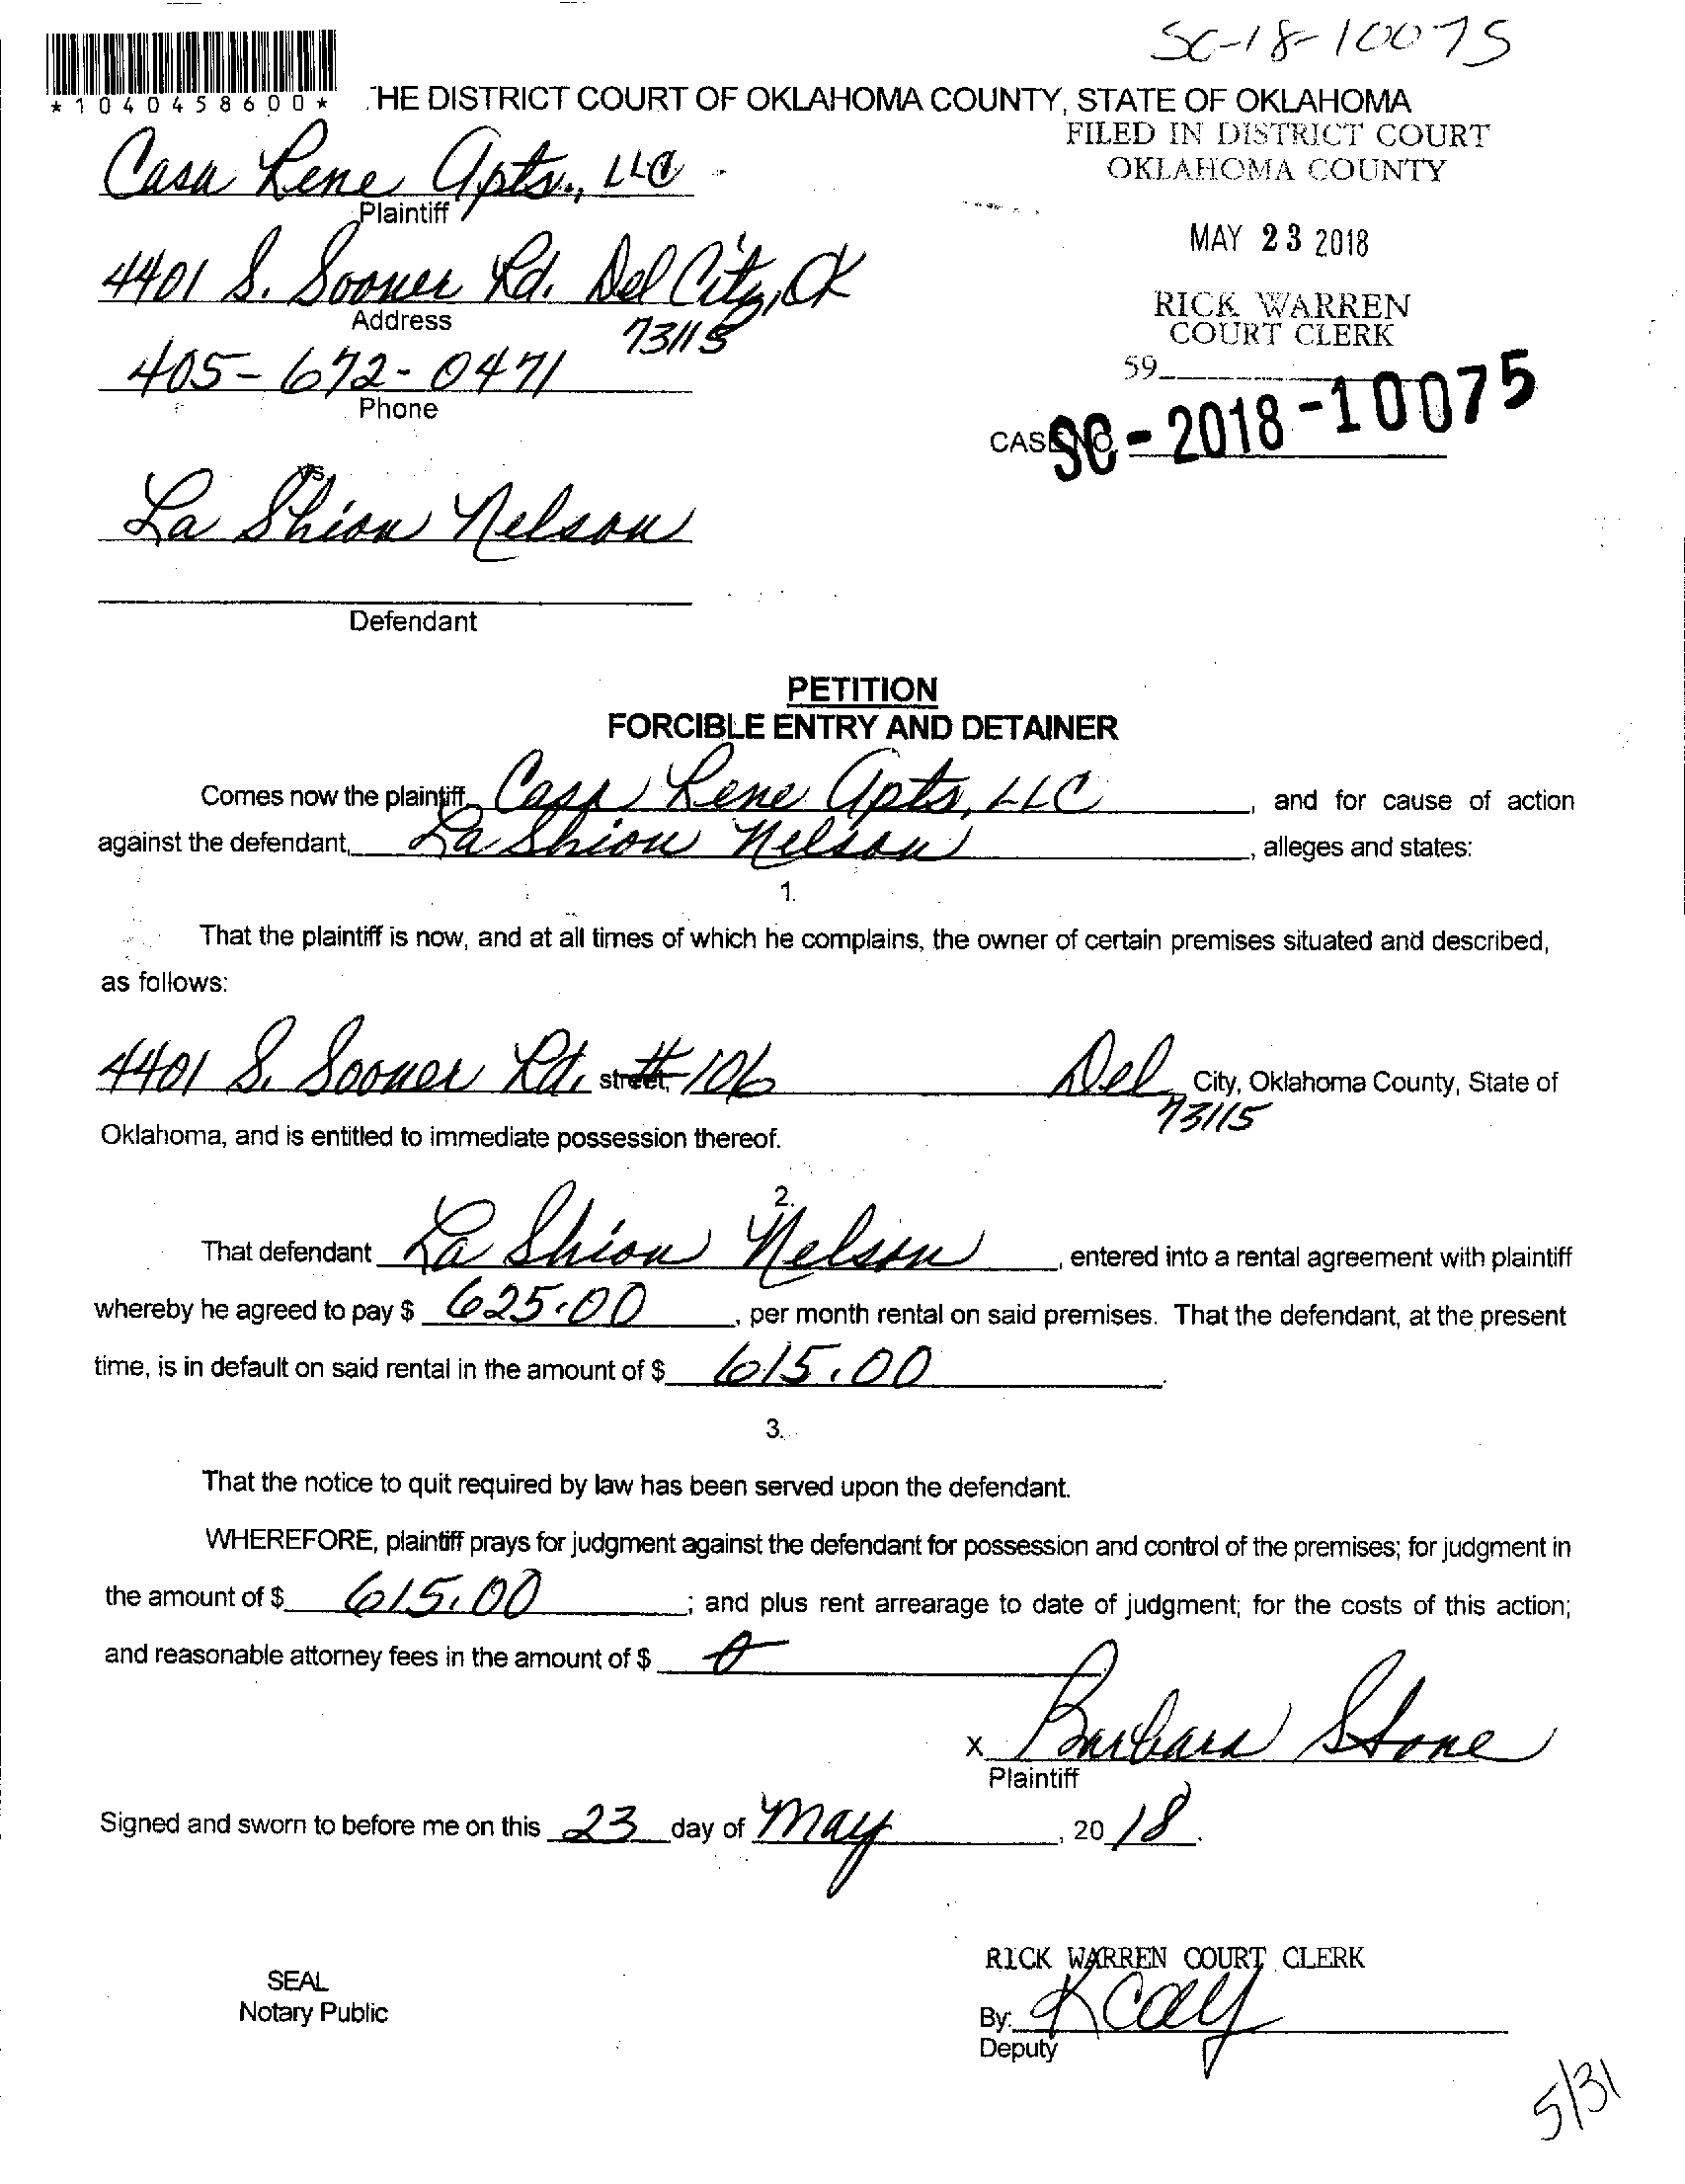 SC-18-10075
*1040458600*
THE DISTRICT COURT OF OKLAHOMA COUNTY, STATE OF OKLAHOMA
FILED IN DISTRICT COURT
OKLAHOMA COUNTY
Casa Rene Apts., LLC
Plaintiff
MAY 23 2018
4401 S. Sooner Rd. Del City, OK
73115
Address
RICK WARREN
COURT CLERK
405-672-0471
Phone
59
CASE NO. SC-2018-10075
vs.
La Shion Nelson
Defendant
PETITION
FORCIBLE ENTRY AND DETAINER
Comes now the plaintiff Casa Rene Apts, LLC, and for cause of action
against the defendant, La Shion Nelson, alleges and states:
1.
That the plaintiff is now, and at all times of which he complains, the owner of certain premises situated and described,
as follows:
4401 S. Sooner Rd. street, #106 Del City, Oklahoma County, State of
73115
Oklahoma, and is entitled to immediate possession thereof.
2.
That defendant La Shion Nelson, entered into a rental agreement with plaintiff
whereby he agreed to pay $ 625.00, per month rental on said premises. That the defendant, at the present
time, is in default on said rental in the amount of $ 615.00
3.
That the notice to quit required by law has been served upon the defendant.
WHEREFORE, plaintiff prays for judgment against the defendant for possession and control of the premises; for judgment in
the amount of $ 615.00; and plus rent arrearage to date of judgment; for the costs of this action;
and reasonable attorney fees in the amount of $ 0
x Barbara Stone
Plaintiff
Signed and sworn to before me on this 23 day of May, 20 18.
RICK WARREN COURT CLERK
SEAL
Notary Public
By: K Cay
Deputy
5/31